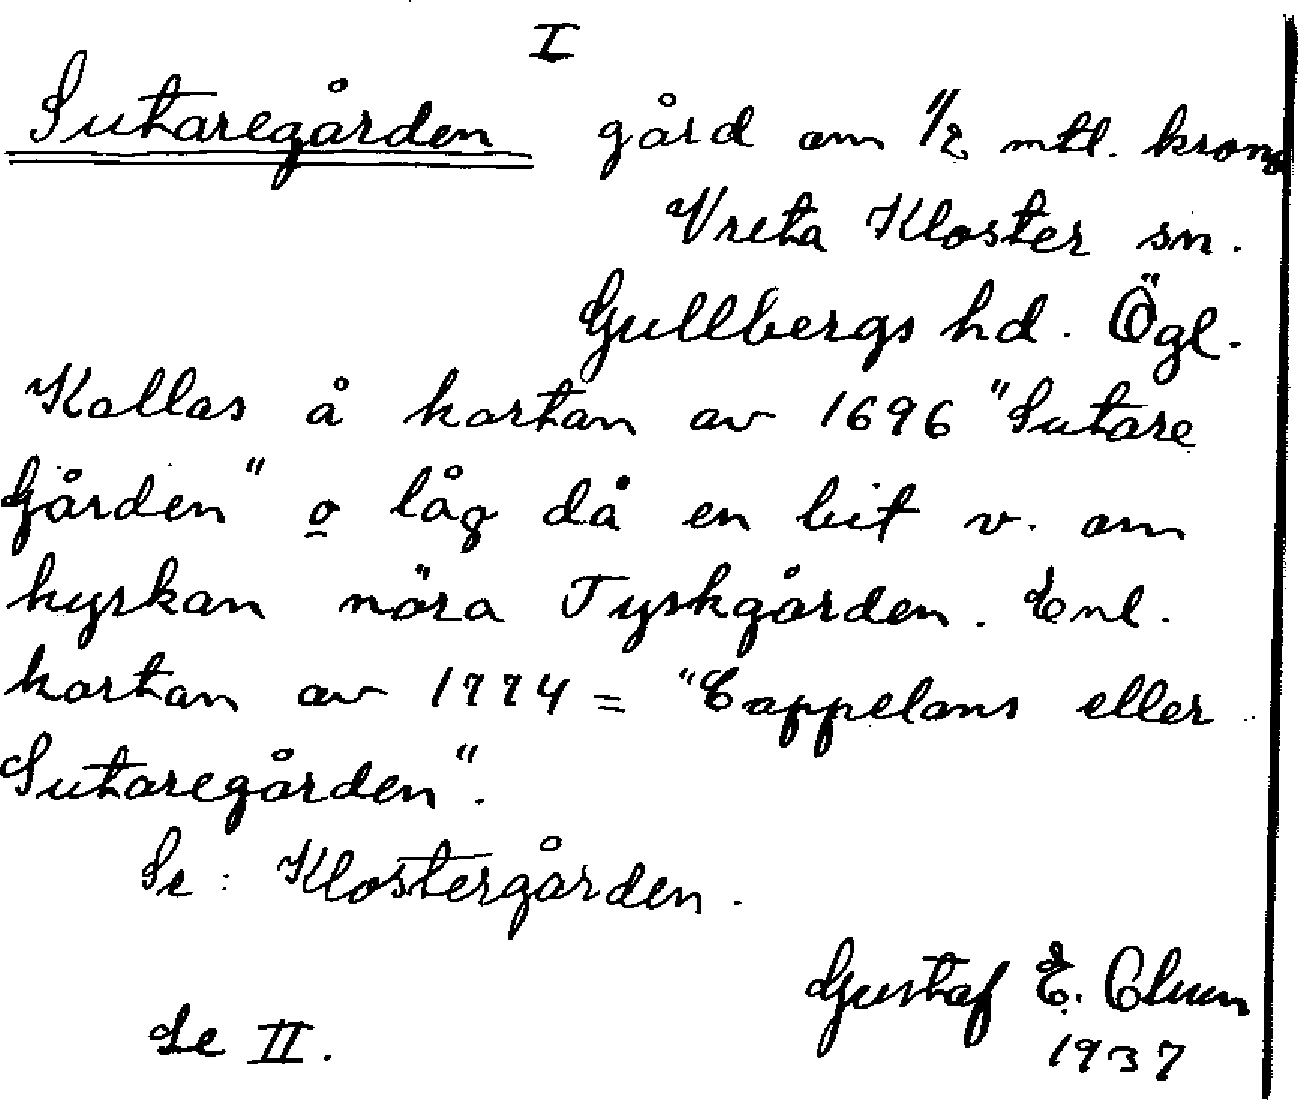 I
Sutaregården gård om 1/2 mtl. krono
Vreta Kloster sn.
Gullbergs hd. Ögl.
Kallas å kartan av 1696 "Sutare
Gården" o låg då en bit v. om
kyrkan nära Tyskgården. Enl.
kartan av 1774 = "Cappelans eller
Sutaregården".
Se: Klostergården.
Gustaf E. Clum
Se II.
1937